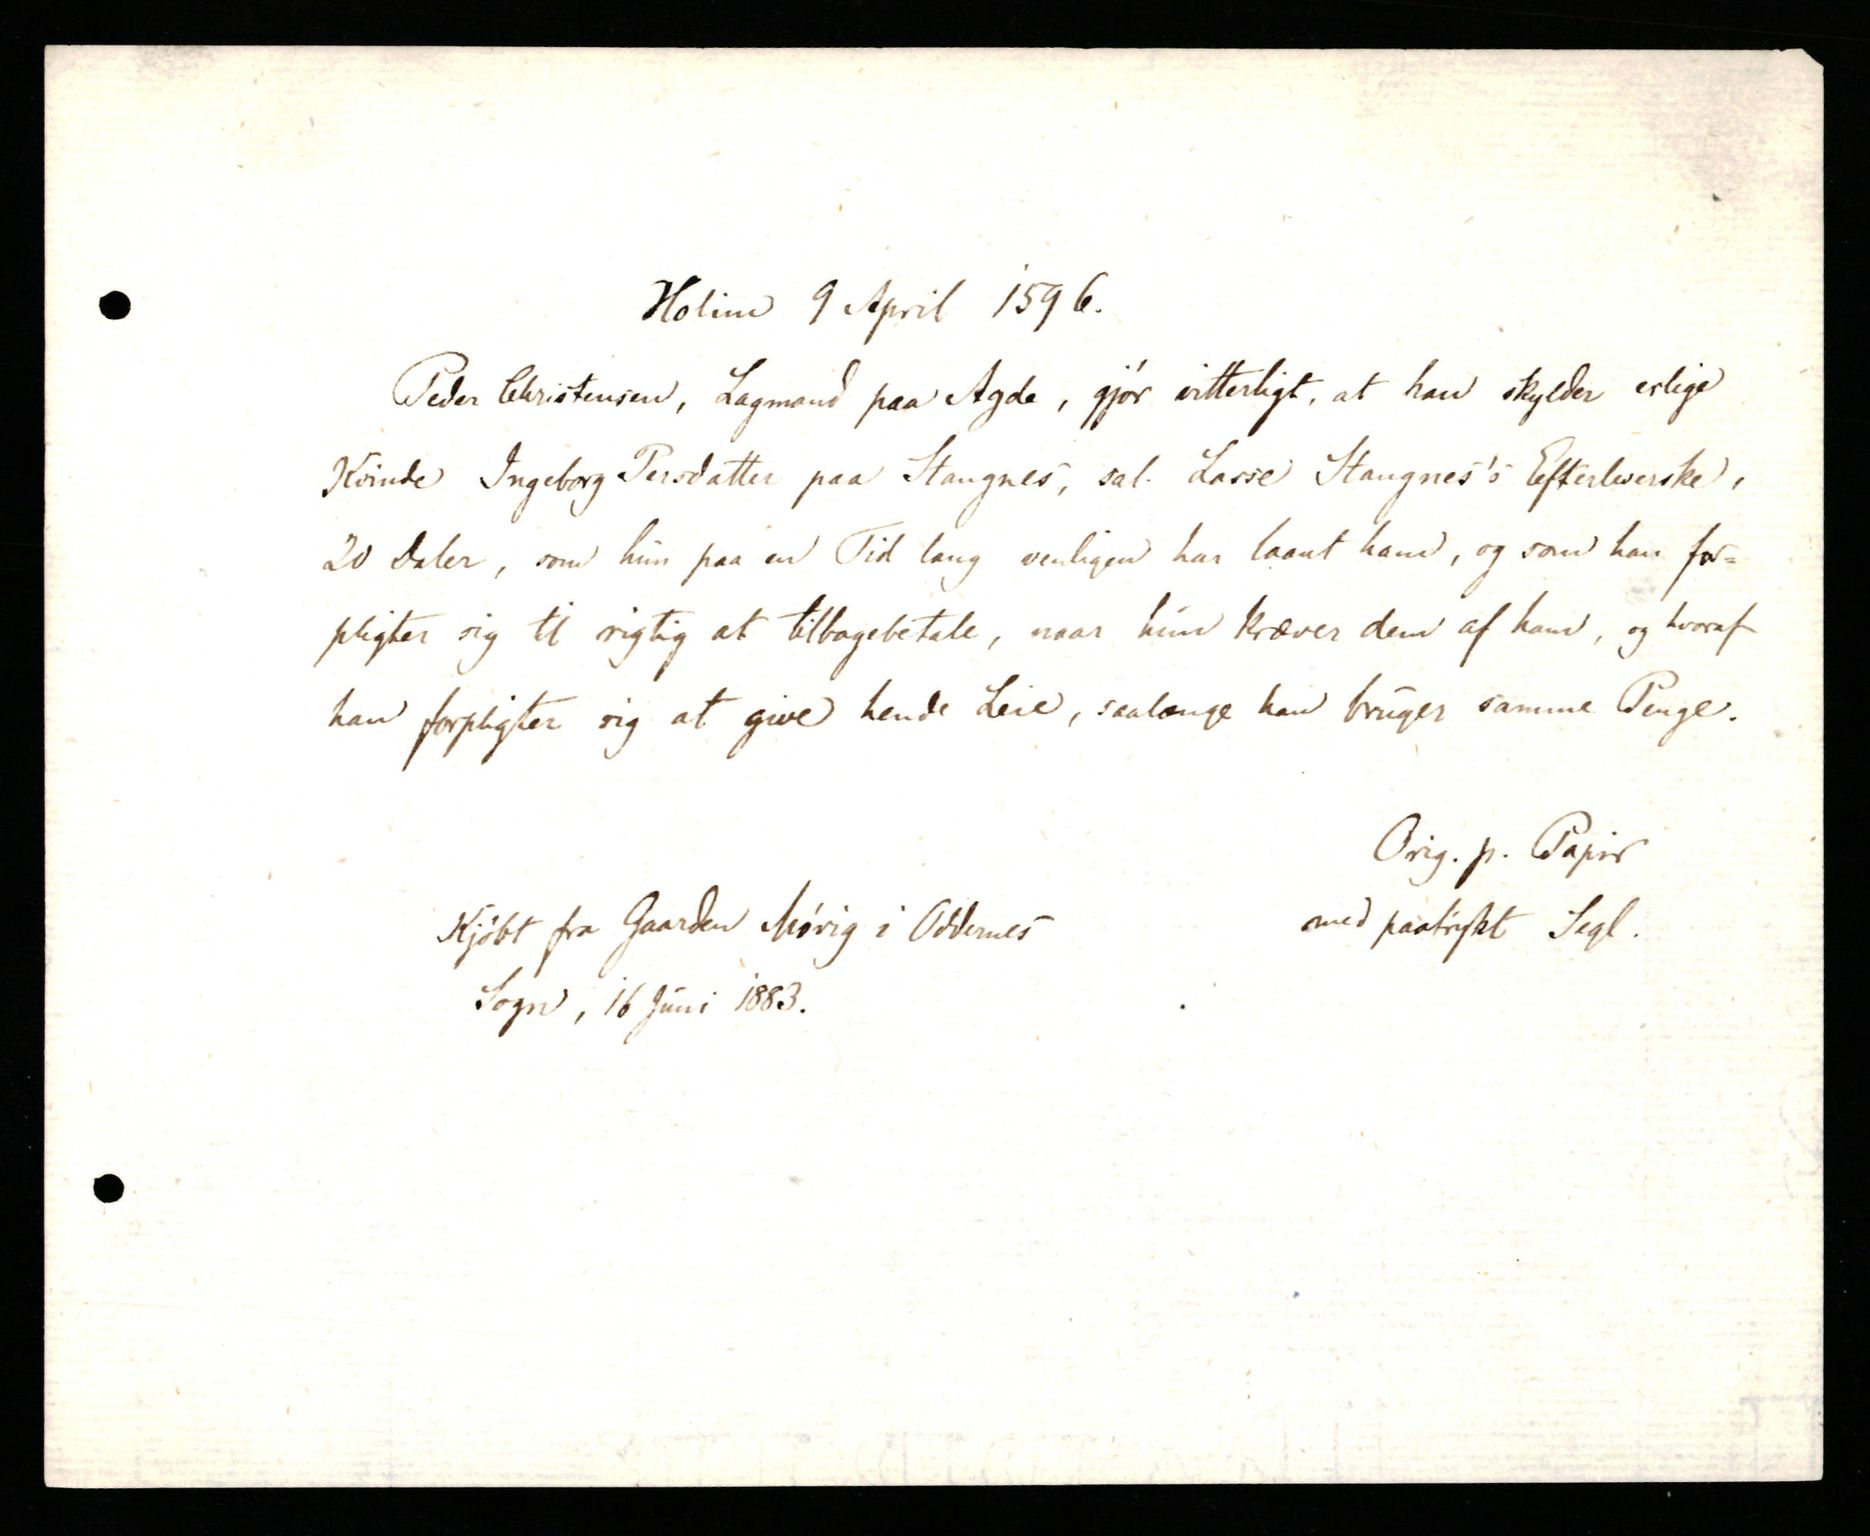 Holim 9 April 1596.
Peder Christensen, Lagmand paa Agde, gjør vitterligt, at han skylder erlige
Kvinde Ingeborg Persdatter paa Stangnes, sal. Lasse Stangnes's Efterleverske,
20 Daler, som hun paa en Tid lang venligen har laant ham, og som han for=
pligter sig til rigtig at tilbagebetale, naar hun kræver dem af ham, og hvoraf
han forpligter sig at give hende Leie, saalænge han bruger samme Penge.
Orig. p. Papir
med paatrykt Segl.
Kjøbt fra Gaarden Møvig i Oddernes
Sogn, 16 Juni 1883.